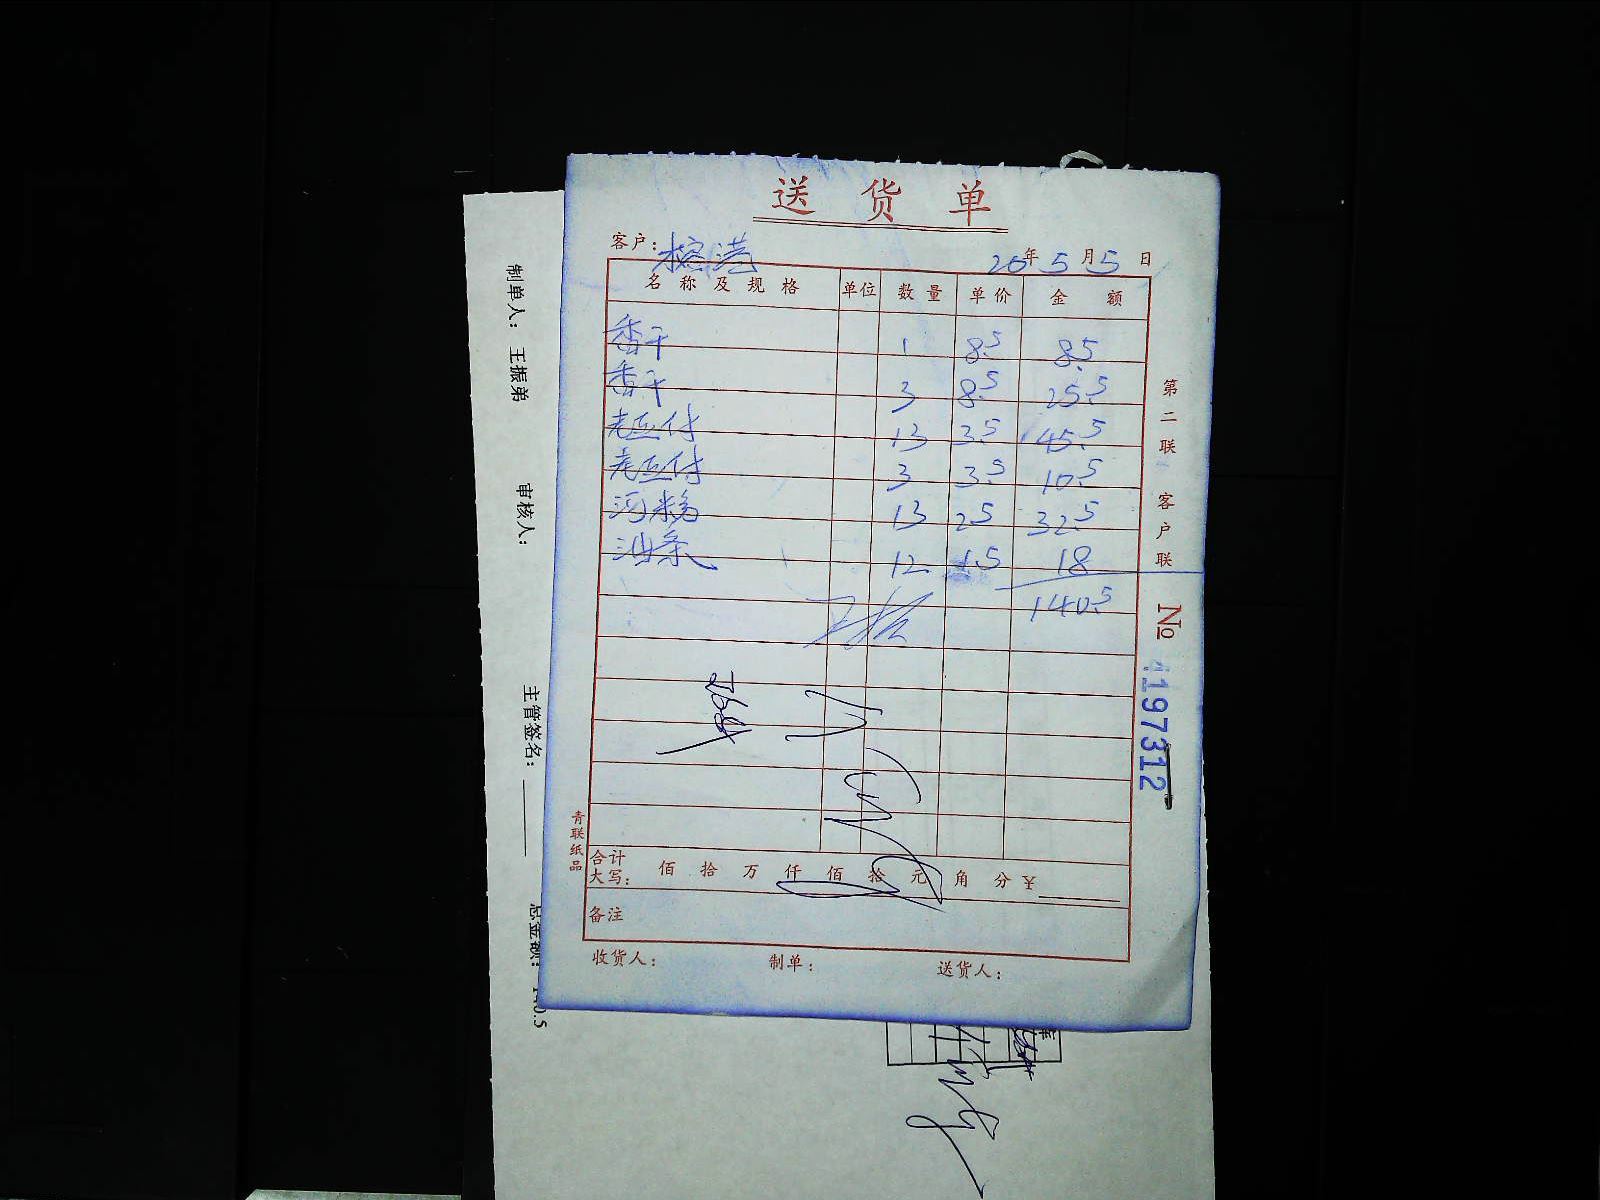 送货单
客户: 榕港 20年5月5日
名称及规格 单位 数量 单价 金额
香干 1 8.5 8.5
香干 3 8.5 25.5
老豆付 13 3.5 45.5
老豆付 3 3.5 10.5
河粉 13 2.5 32.5
油条 12 1.5 18
140.5
王振
合计大写: 佰 拾 万 仟 佰 拾 元 角 分 ¥
备注
收货人: 制单: 送货人:
第二联 客户联
No 4197312
青联纸品
制单人: 王振弟 审核人: 主管签名: 总金额: